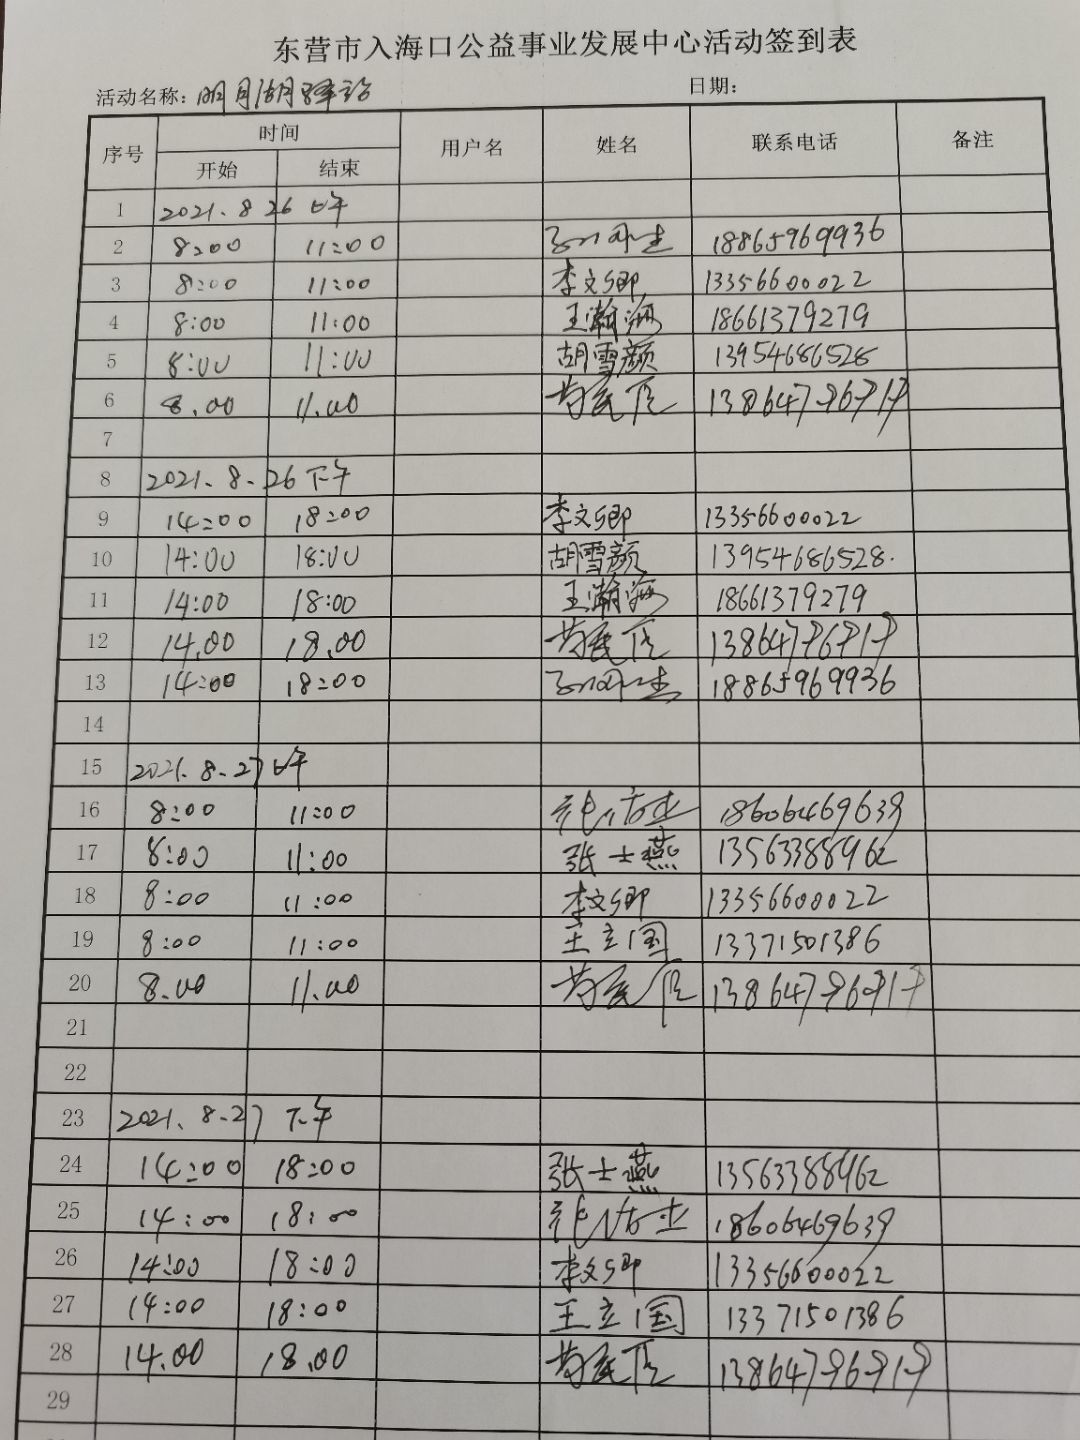 东营市入海口公益事业发展中心活动签到表
活动名称：明月湖驿站 日期：
序号 时间 用户名 姓名 联系电话 备注
开始 结束
1 2021.8.26 上午
2 8:00 11:00 18865969936
3 8:00 11:00 李文卿 13356600022
4 8:00 11:00 王瀚海 18661379279
5 8:00 11:00 胡雪颜 13954686528
6 8.00 11.00
7
8 2021.8.26 下午
9 14:00 18:00 李文卿 13356600022
10 14:00 18:00 胡雪颜 13954686528.
11 14:00 18:00 王瀚海 18661379279
12 14.00 18.00
13 14:00 18:00 18865969936
14
15 2021.8.27 上午
16 8:00 11:00 18606469639
17 8:00 11:00 张士燕 13563388962
18 8:00 11:00 李文卿 13356600022
19 8:00 11:00 王立国 13371501386
20 8.00 11.00
21
22
23 2021.8.27 下午
24 14:00 18:00 张士燕 13563388962
25 14:00 18:00 18606469639
26 14:00 18:00 李文卿 13356600022
27 14:00 18:00 王立国 13371501386
28 14.00 18.00
29